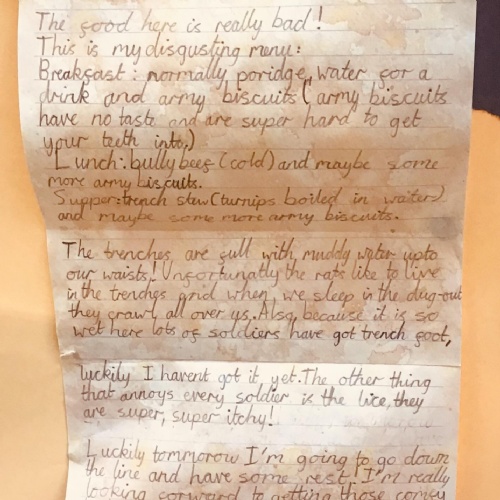 The food here is really bad!
This is my disgusting menu:
Breakfast: normally poridge, water for a
drink and army biscuits (army biscuits
have no taste and are super hard to get
your teeth into,)
Lunch: bullybeef (cold) and maybe some
more army biscuits.
Supper: trench stew (turnips boiled in waiter)
and maybe some more army biscuits.
The trenches are full with muddy water upto
our waists! Unfortunatly the rats like to live
in the trenches and when we sleep in the dug-out
they crawl all over us. Also, because it is so
wet here lots of soldiers have got trench foot,
luckily I havent got it yet. The other thing
that annoys every soldier is the lice, they
are super, super itchy!
Luckily tommorow I'm going to go down
the line and have some rest, I'm really
looking forward to getting those comfy